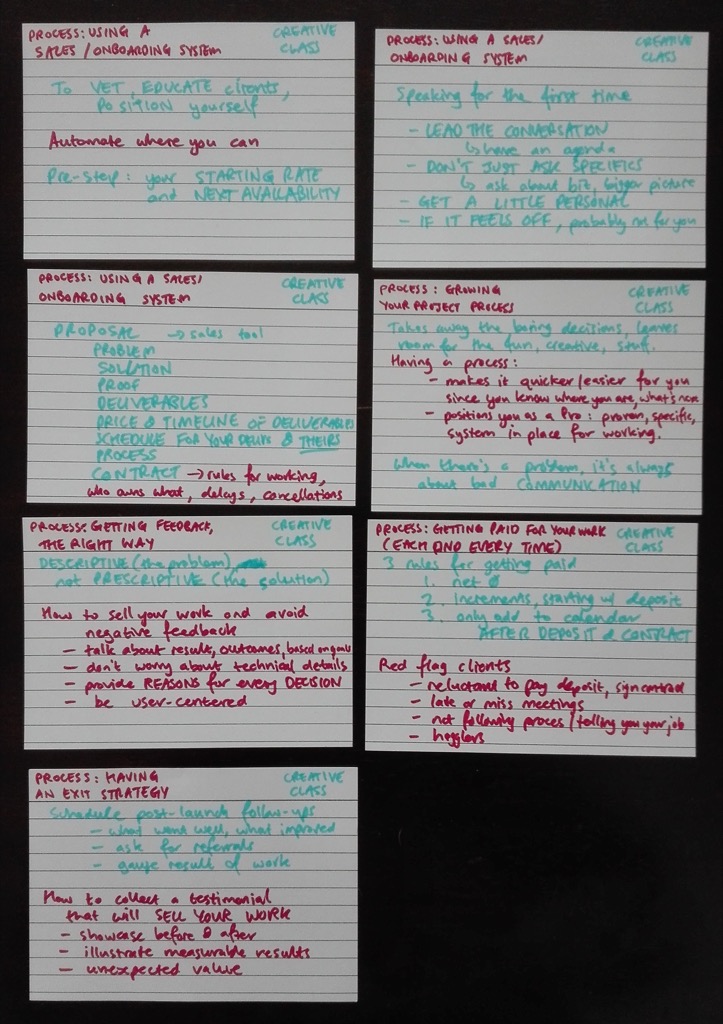 PROCESS: USING A
SALES/ONBOARDING SYSTEM
CREATIVE
CLASS
To VET, EDUCATE clients,
POSITION yourself
Automate where you can
Pre-step: your STARTING RATE
and NEXT AVAILABILITY
PROCESS: USING A SALES/
ONBOARDING SYSTEM
CREATIVE
CLASS
Speaking for the first time
- LEAD THE CONVERSATION
↳ have an agenda
- DON'T JUST ASK SPECIFICS
↳ ask about biz, bigger picture
- GET A LITTLE PERSONAL
- IF IT FEELS OFF, probably not for you
PROCESS: USING A SALES/
ONBOARDING SYSTEM
CREATIVE
CLASS
PROPOSAL → sales tool
PROBLEM
SOLUTION
PROOF
DELIVERABLES
PRICE & TIMELINE OF DELIVERABLES
SCHEDULE FOR YOUR DELIVS & THEIRS
PROCESS
CONTRACT → rules for working,
who owns what, delays, cancellations
PROCESS: GROWING
YOUR PROJECT PROCESS
CREATIVE
CLASS
Takes away the boring decisions, leaves
room for the fun, creative, stuff.
Having a process:
- makes it quicker/easier for you
since you know where you are, what's next
- positions you as a Pro: proven, specific,
system in place for working.
When there's a problem, it's always
about bad COMMUNICATION
PROCESS: GETTING FEEDBACK,
THE RIGHT WAY
CREATIVE
CLASS
DESCRIPTIVE (the problem),
not PRESCRIPTIVE (the solution)
How to sell your work and avoid
negative feedback
- talk about results, outcomes, based on goals
- don't worry about technical details
- provide REASONS for every DECISION
- be user-centered
PROCESS: GETTING PAID FOR YOUR WORK
(EACH AND EVERY TIME)
CREATIVE
CLASS
3 rules for getting paid
1. net 0
2. Increments, starting w/ deposit
3. only add to calendar
AFTER DEPOSIT & CONTRACT
Red flag clients
- reluctant to pay deposit, sign contract
- late or miss meetings
- not following process/telling you your job
- hagglers
PROCESS: HAVING
AN EXIT STRATEGY
CREATIVE
CLASS
Schedule post-launch follow-ups
- what went well, what improved
- ask for referrals
- gauge result of work
How to collect a testimonial
that will SELL YOUR WORK
- showcase before & after
- illustrate measurable results
- unexpected value